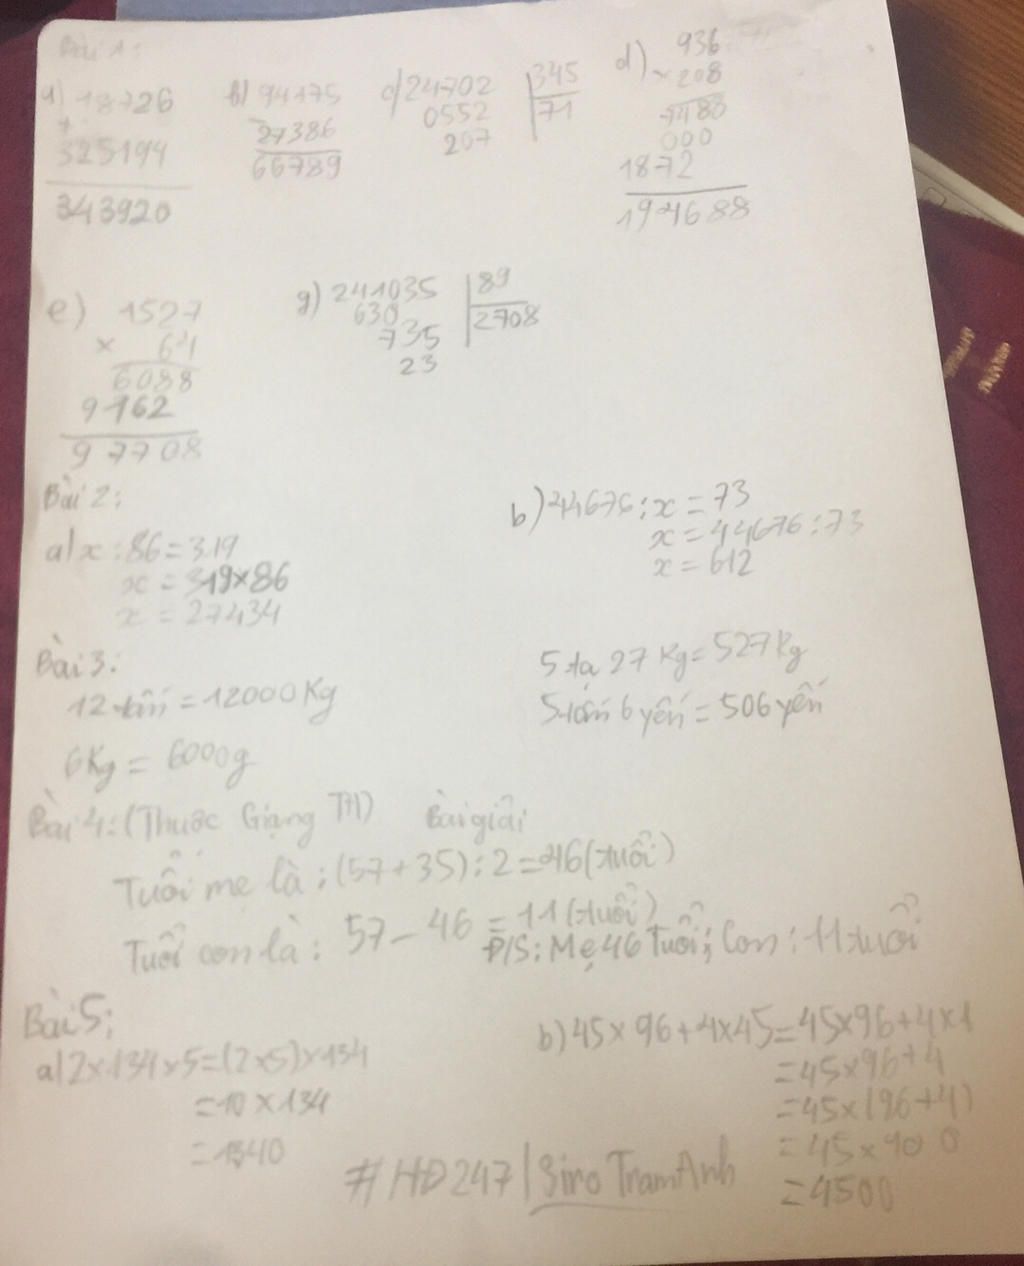 Bài 1:
a) 18726
+
325194
343920
b) 94175
- 27386
66789
c) 24702 | 345
0552 | 71
207
d) 936
× 208
7488
000
1872
194688
e) 1527
× 64
6088
9162
97708
g) 241035 | 89
630 | 2708
735
23
Bài 2:
a) x : 86 = 319
x = 319 × 86
x = 27434
b) 44676 : x = 73
x = 44676 : 73
x = 612
Bài 3:
12 tấn = 12000 Kg
5 tạ 27 Kg = 527 Kg
6 Kg = 6000g
5 tấn 6 yến = 506 yến
Bài 4: (Thuộc Giạng TH) Bài giải
Tuổi mẹ là : (57 + 35) : 2 = 46 (tuổi)
Tuổi con là : 57 - 46 = 11 (tuổi)
Đ/S: Mẹ 46 Tuổi; Con : 11 tuổi
Bài 5:
a) 2 × 134 × 5 = (2 × 5) × 134
= 10 × 134
= 1340
b) 45 × 96 + 4 × 45 = 45 × 96 + 4 × 1
= 45 × 96 + 4
= 45 × (96 + 4)
= 45 × 100
= 4500
# HD247 | Siro TramAnh